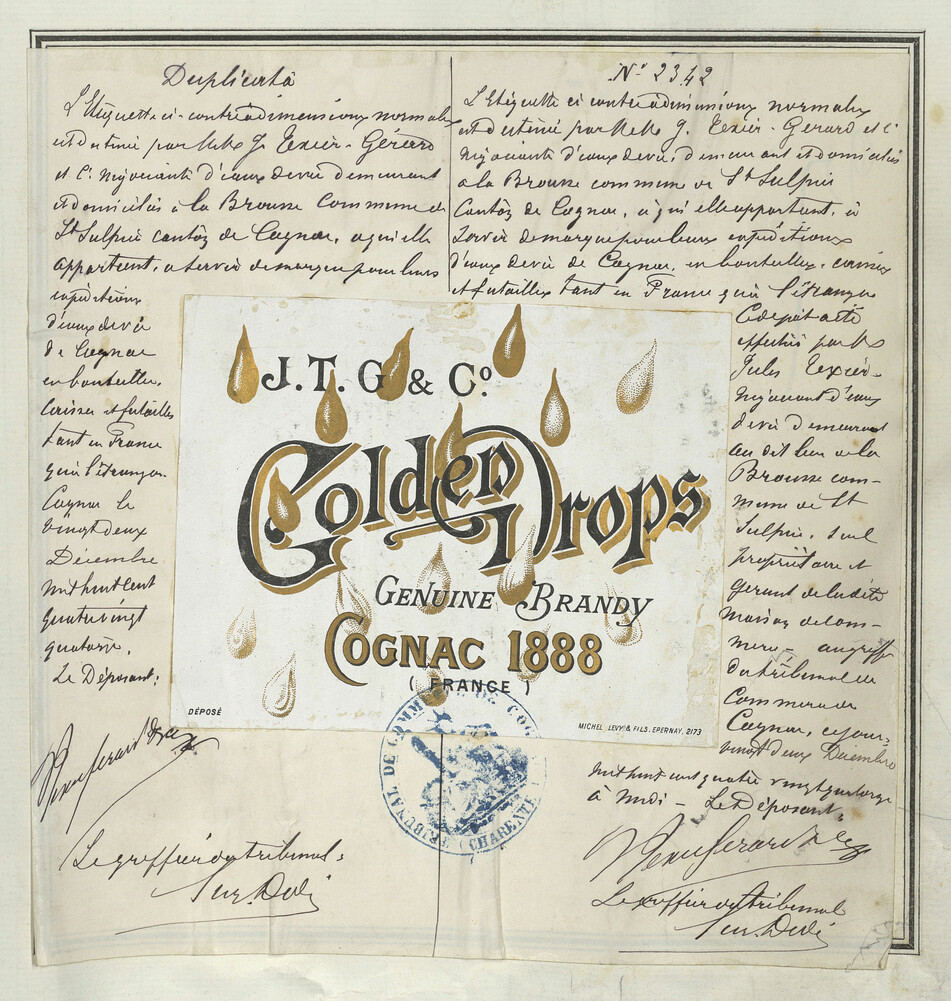 Duplicata
L'Etiquette ci-contre à dimensions normales
est destiné par MM. J. Texier-Gérard
et Cie négociants d'eaux de vie demeurant
et domiciliés à la Brousse Commune de
St Sulpice canton de Cognac, à qui elle
appartient, à servir de marque pour leurs
expéditions
d'eaux de vie
de Cognac
en bouteilles,
Caisses et futailles
tant en France
qu'à l'étranger.
Cognac le
vingt deux
Décembre
mil huit cent
quatre vingt
quatorze.
Le Déposant:
Le greffier du tribunal:
No 2342
L'Etiquette ci contre à dimensions normales
est destiné par MM. J. Texier-Gérard et Cie
négociants d'eaux de vie, demeurant et domiciliés
à la Brousse commune de St Sulpice
Canton de Cognac, à qui elle appartient, à
servir de marque pour leurs expéditions
d'eaux de vie de Cognac, en bouteilles, caisses
et futailles tant en France qu'à l'étranger
Ce dépôt a été
effectué par M.
Jules Texier-
négociant d'eaux
de vie demeurant
au dit lieu de la
Brousse com-
mune de St
Sulpice, seul
propriétaire et
gérant de la dite
maison de com-
merce - au greffe
du tribunal de
Commerce de
Cognac, ce jour-
vingt deux Décembre
mil huit cent quatre vingt quatorze
à midi - Le Déposant:
Le greffier du tribunal
J.T.G & Co.
Golden Drops
GENUINE BRANDY
COGNAC 1888
( FRANCE )
DÉPOSÉ
MICHEL LEVY & FILS, EPERNAY, 2173
TRIBUNAL DE COMMERCE DE COGNAC
(CHARENTE)